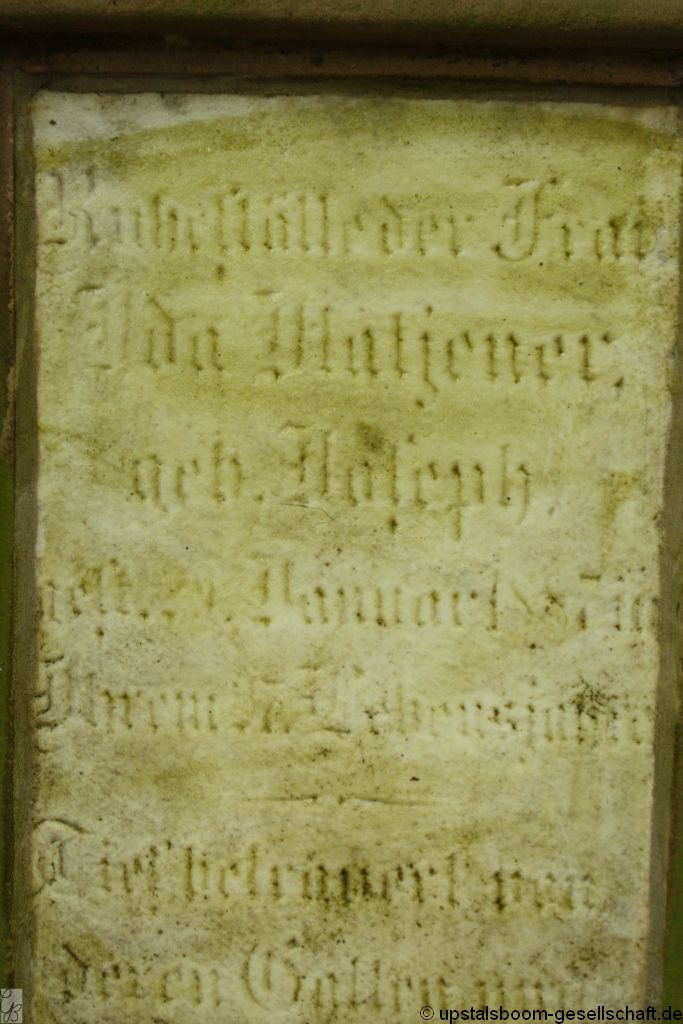 Ruhestätte der Frau
Ida Matzener,
geb. Joseph,
gest. Januar im
Ihrem Lebensjahre
Tief betrauert von
deren Gatten und
© upstalsboom-gesellschaft.de